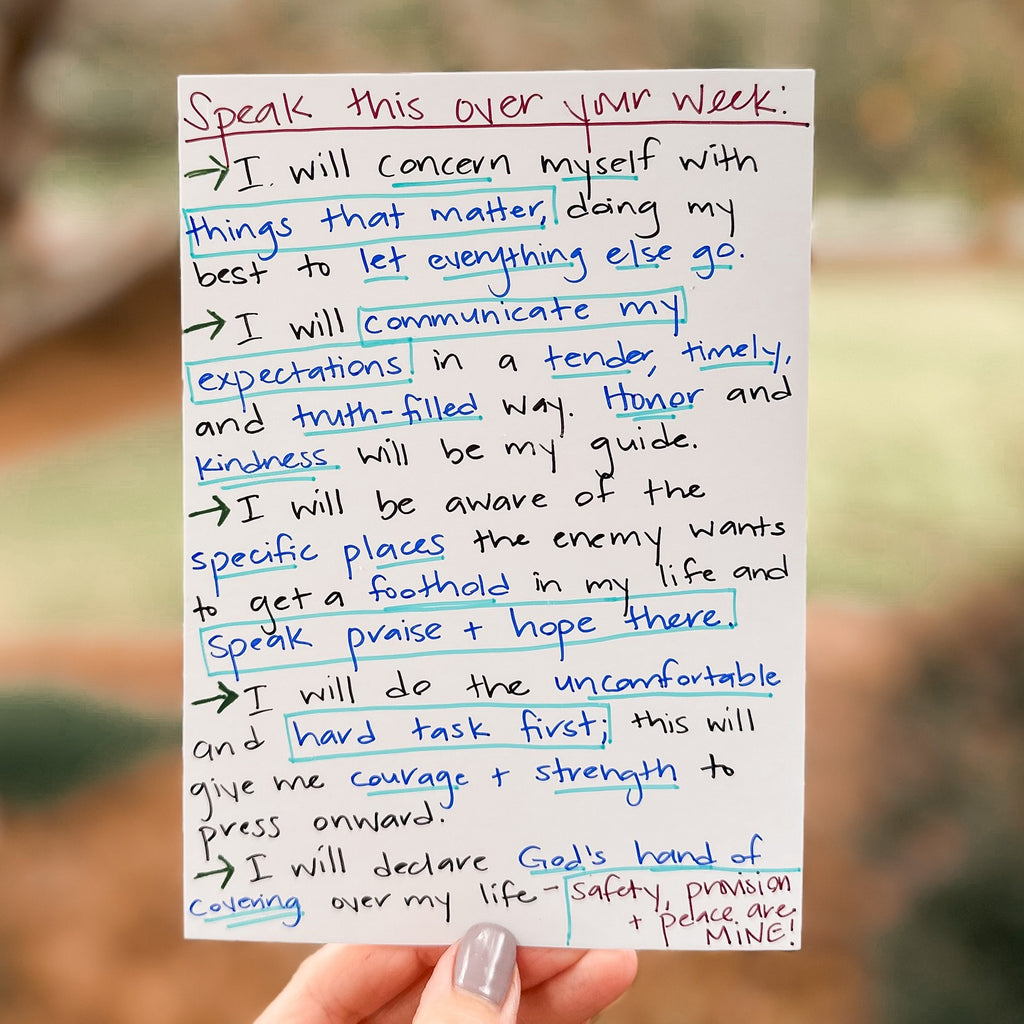 Speak this over your week:
→ I will concern myself with
things that matter, doing my
best to let everything else go.
→ I will communicate my
expectations in a tender, timely,
and truth-filled way. Honor and
kindness will be my guide.
→ I will be aware of the
specific places the enemy wants
to get a foothold in my life and
speak praise + hope there.
→ I will do the uncomfortable
and hard task first; this will
give me courage + strength to
press onward.
→ I will declare God's hand of
covering over my life - safety, provision
+ peace are
MINE!